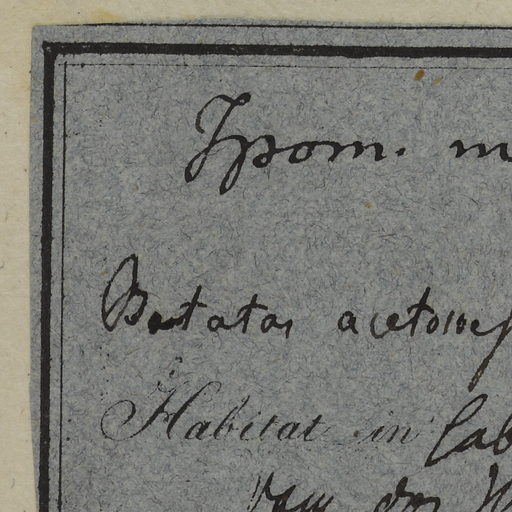 Ipom. m
Batatas acetosaef
Habitat in Cab